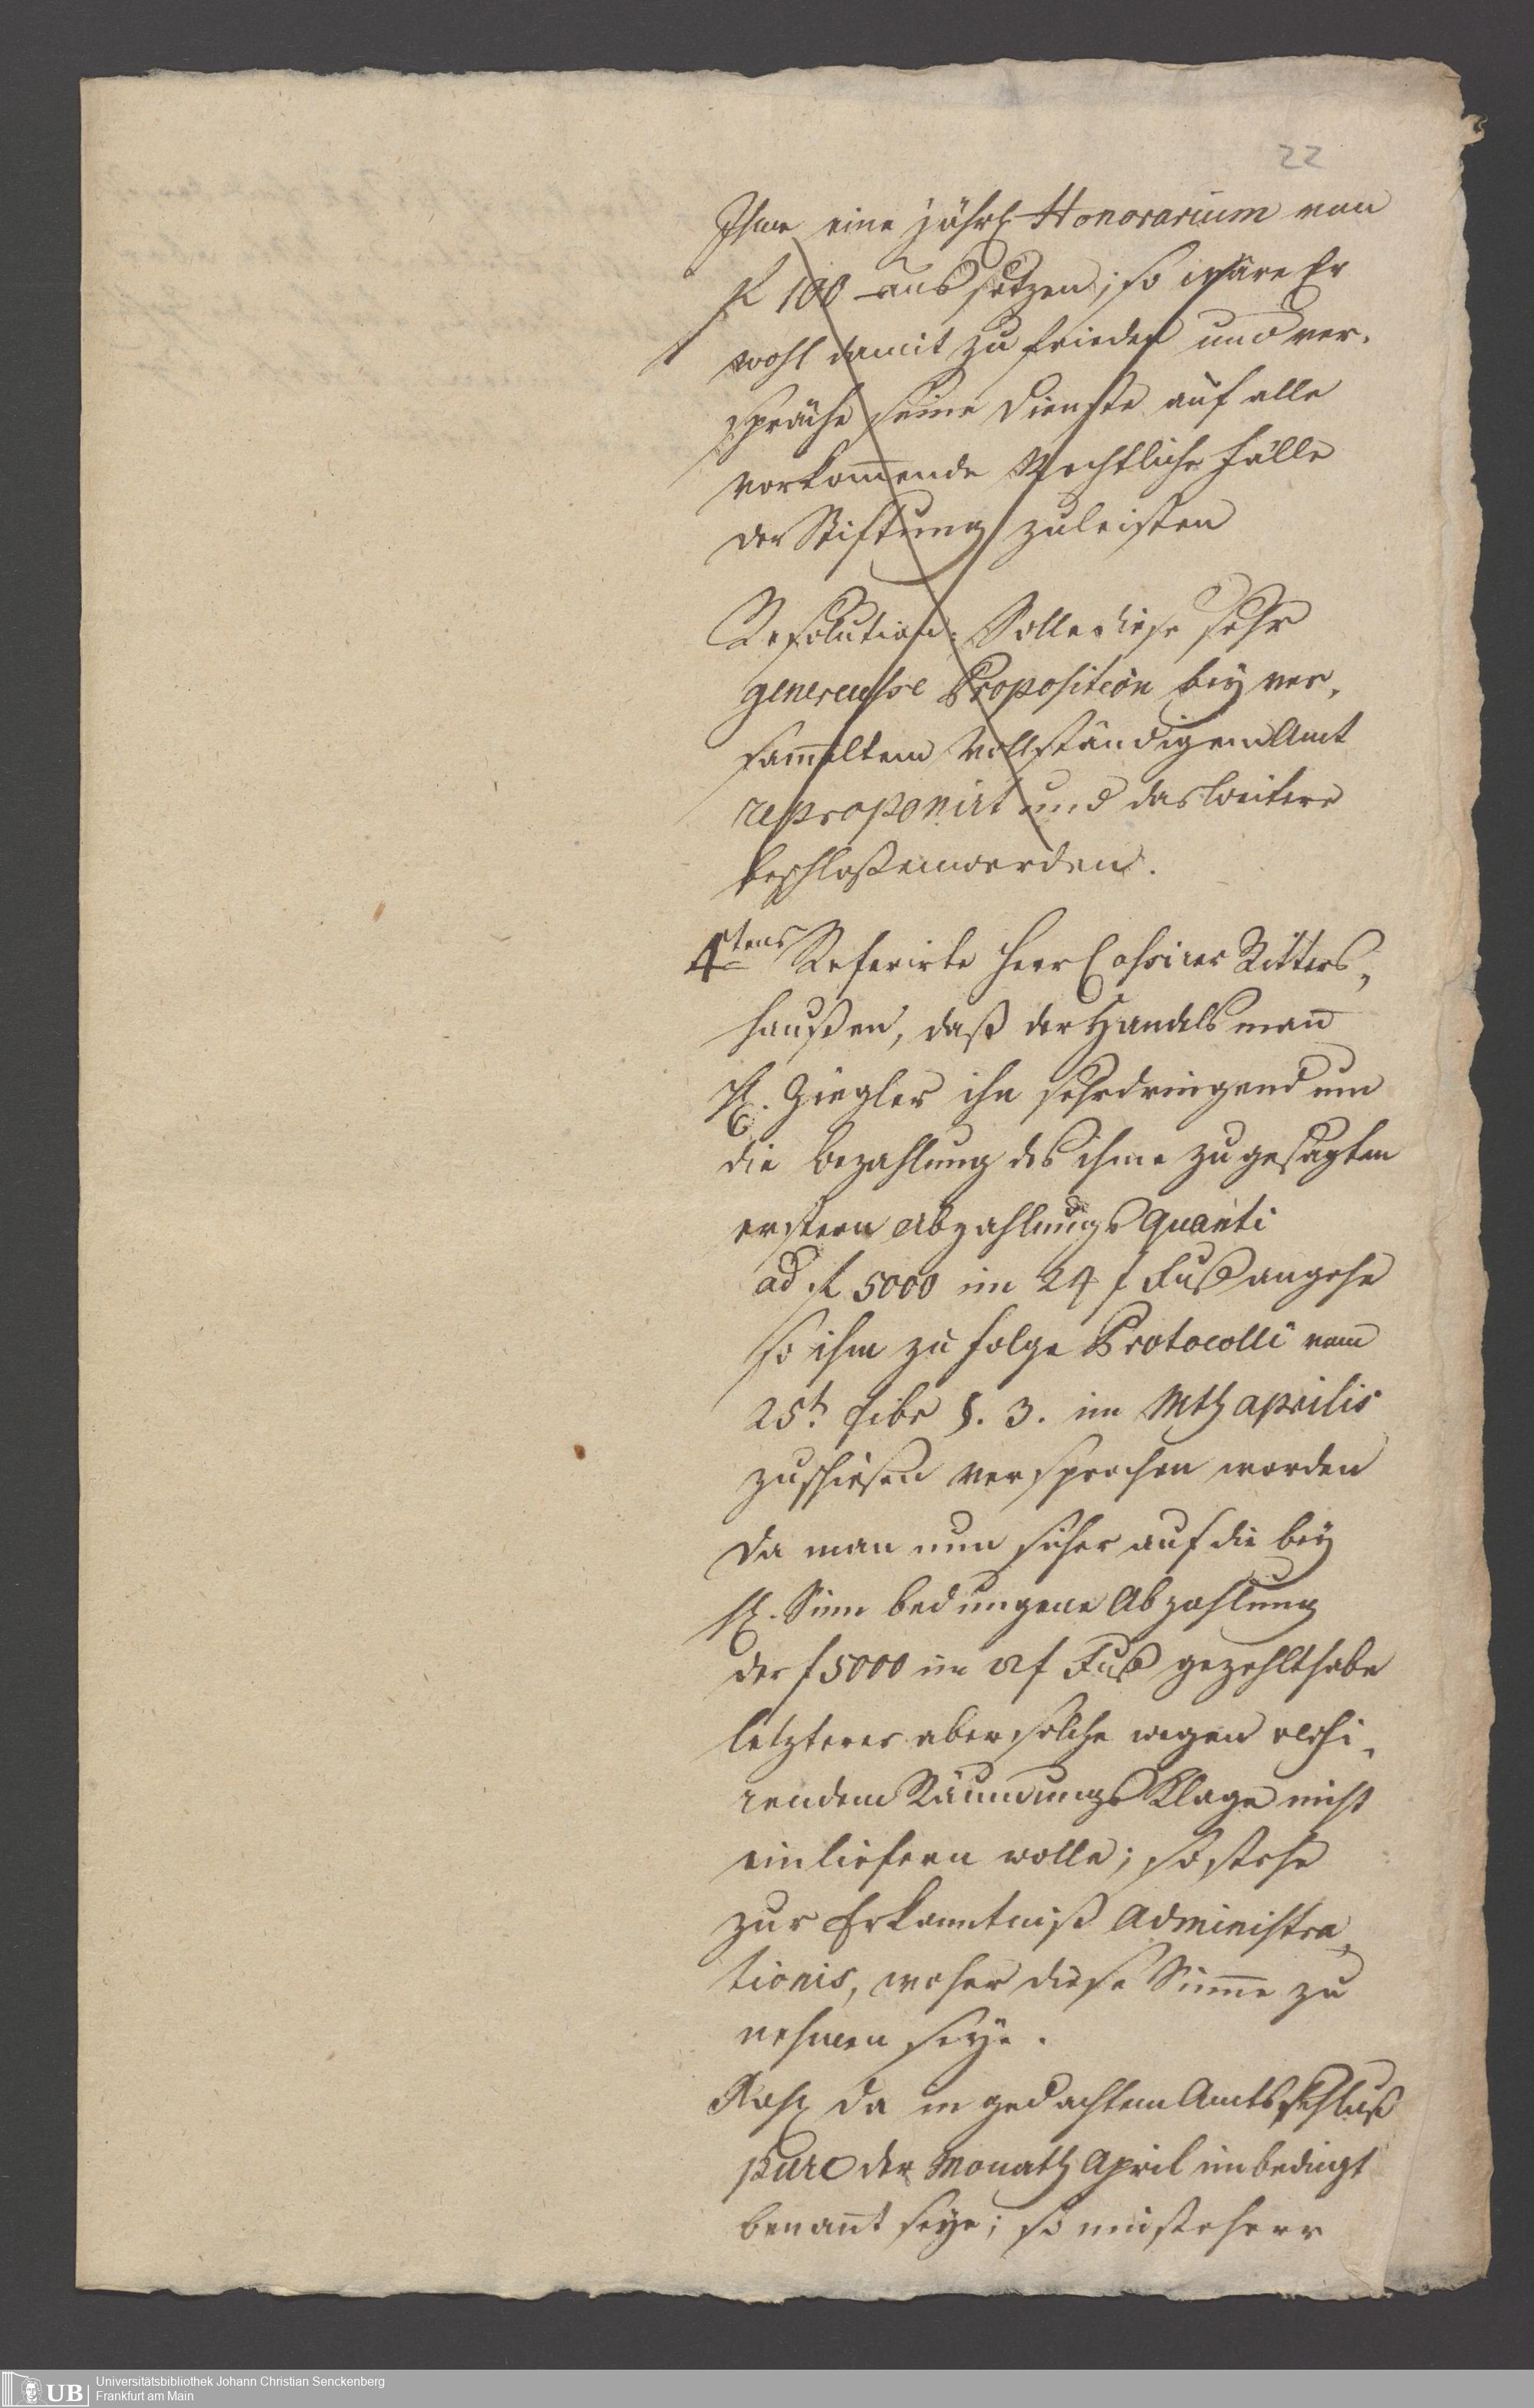 22
Ihme eine jährl Honorarium von
f 100 aussetzen; so wäre Er
wohl damit zufrieden und ver,
spräche seine Dienste auf alle
vorkom̄ende Rechtliche Fälle
der Stiftung zuleisten
Resolution: Solle diese sehr
genereusse Proposition bey ver,
sam̄eltem vollständigem Amt
reproponirt und das Weitere
beschloßen werden.
4tens Referirte Herr Cassirer Ritters,
haußen, daß der Handelsman̄
H. Ziegler ihn sehr dringend um
die Bezahlung des ihme zugesagten
erstern Abzahlungs Quanti
ad f 5000 im 24 f Fuß angehe
so ihm zu folge Protocolli vom
25t. §. 3. im Mth Aprilis
zuschiesen versprochen worden
da man nun sicher auf die bey
H. Sinn bedungene Abzahlung
der f 5000 im f Fuß gezehlt habe
letzterer aber solche wegen
rendem Räumungs Klage nicht
einliefern wolle; so stehe
zur Erkanntniß Administra,
tionis, woher diese Sum̄e zu
nehmen seye.
Resp da in gedachtem Amtsschluß
pure der Monath April unbedingt
benan̄t seye; so müste Herr
Universitätsbibliothek Johann Christian Senckenberg
Frankfurt am Main
UB